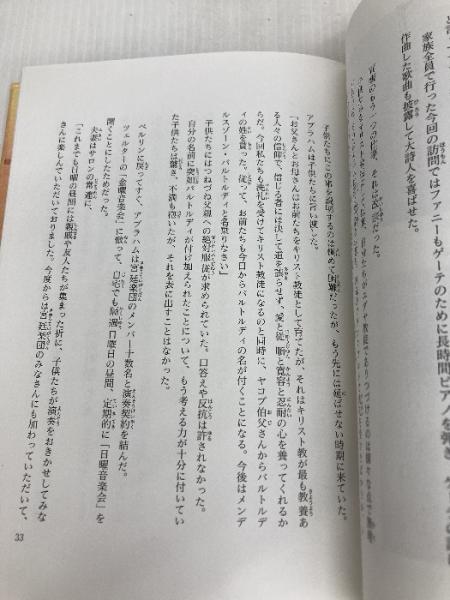 家族全員で行った今回の訪問ではファニーもゲーテのために長時間ピアノを弾き
作曲した歌曲も披露して大詩人を喜ばせた。
子供たちにこの事を説明するのは極めて困難だったが、もう先には延ばせない時期に来ていた。
アブラハムは子供たちに言い渡した。
「お父さんとお母さんはお前たちをキリスト教徒として育てたが、それはキリスト教が最も教養あ
る人々の信仰で、信じる者には決して道を誤らせず、愛と従順と寛容と忍耐の心を養ってくれるか
らだ。今回私たちも洗礼を受けてキリスト教徒になるのと同時に、ヤコブ伯父さんからバルトルデ
ィの姓を貰った。従って、お前たちも今日からバルトルディの名が付くことになる。今後はメンデ
ルスゾーン・バルトルディと名乗りなさい」
子供たちにはつねづね父親への絶対服従が求められていた。口答えや反抗は許されなかった。
自分の名前に突如バルトルディが付け加えられたことについて、もう考える力が十分に付いてい
た子供たちは驚き、不満も抱いたが、それを表に出すことはなかった。
ベルリンに戻ってすぐ、アブラハムは宮廷楽団のメンバー十数名と演奏契約を結んだ。
ツェルターの「金曜音楽会」に倣って、自宅でも隔週日曜日の昼間、定期的に「日曜音楽会」を
開くことにしたためだった。
夫妻はサロンの常連に、
「これまでも日曜の昼間には親戚や友人たちが集まった折に、子供たちが演奏をおきかせしてみな
さんに楽しんでいただいておりました。今度からは宮廷楽団のみなさんにも加わっていただいて、
33